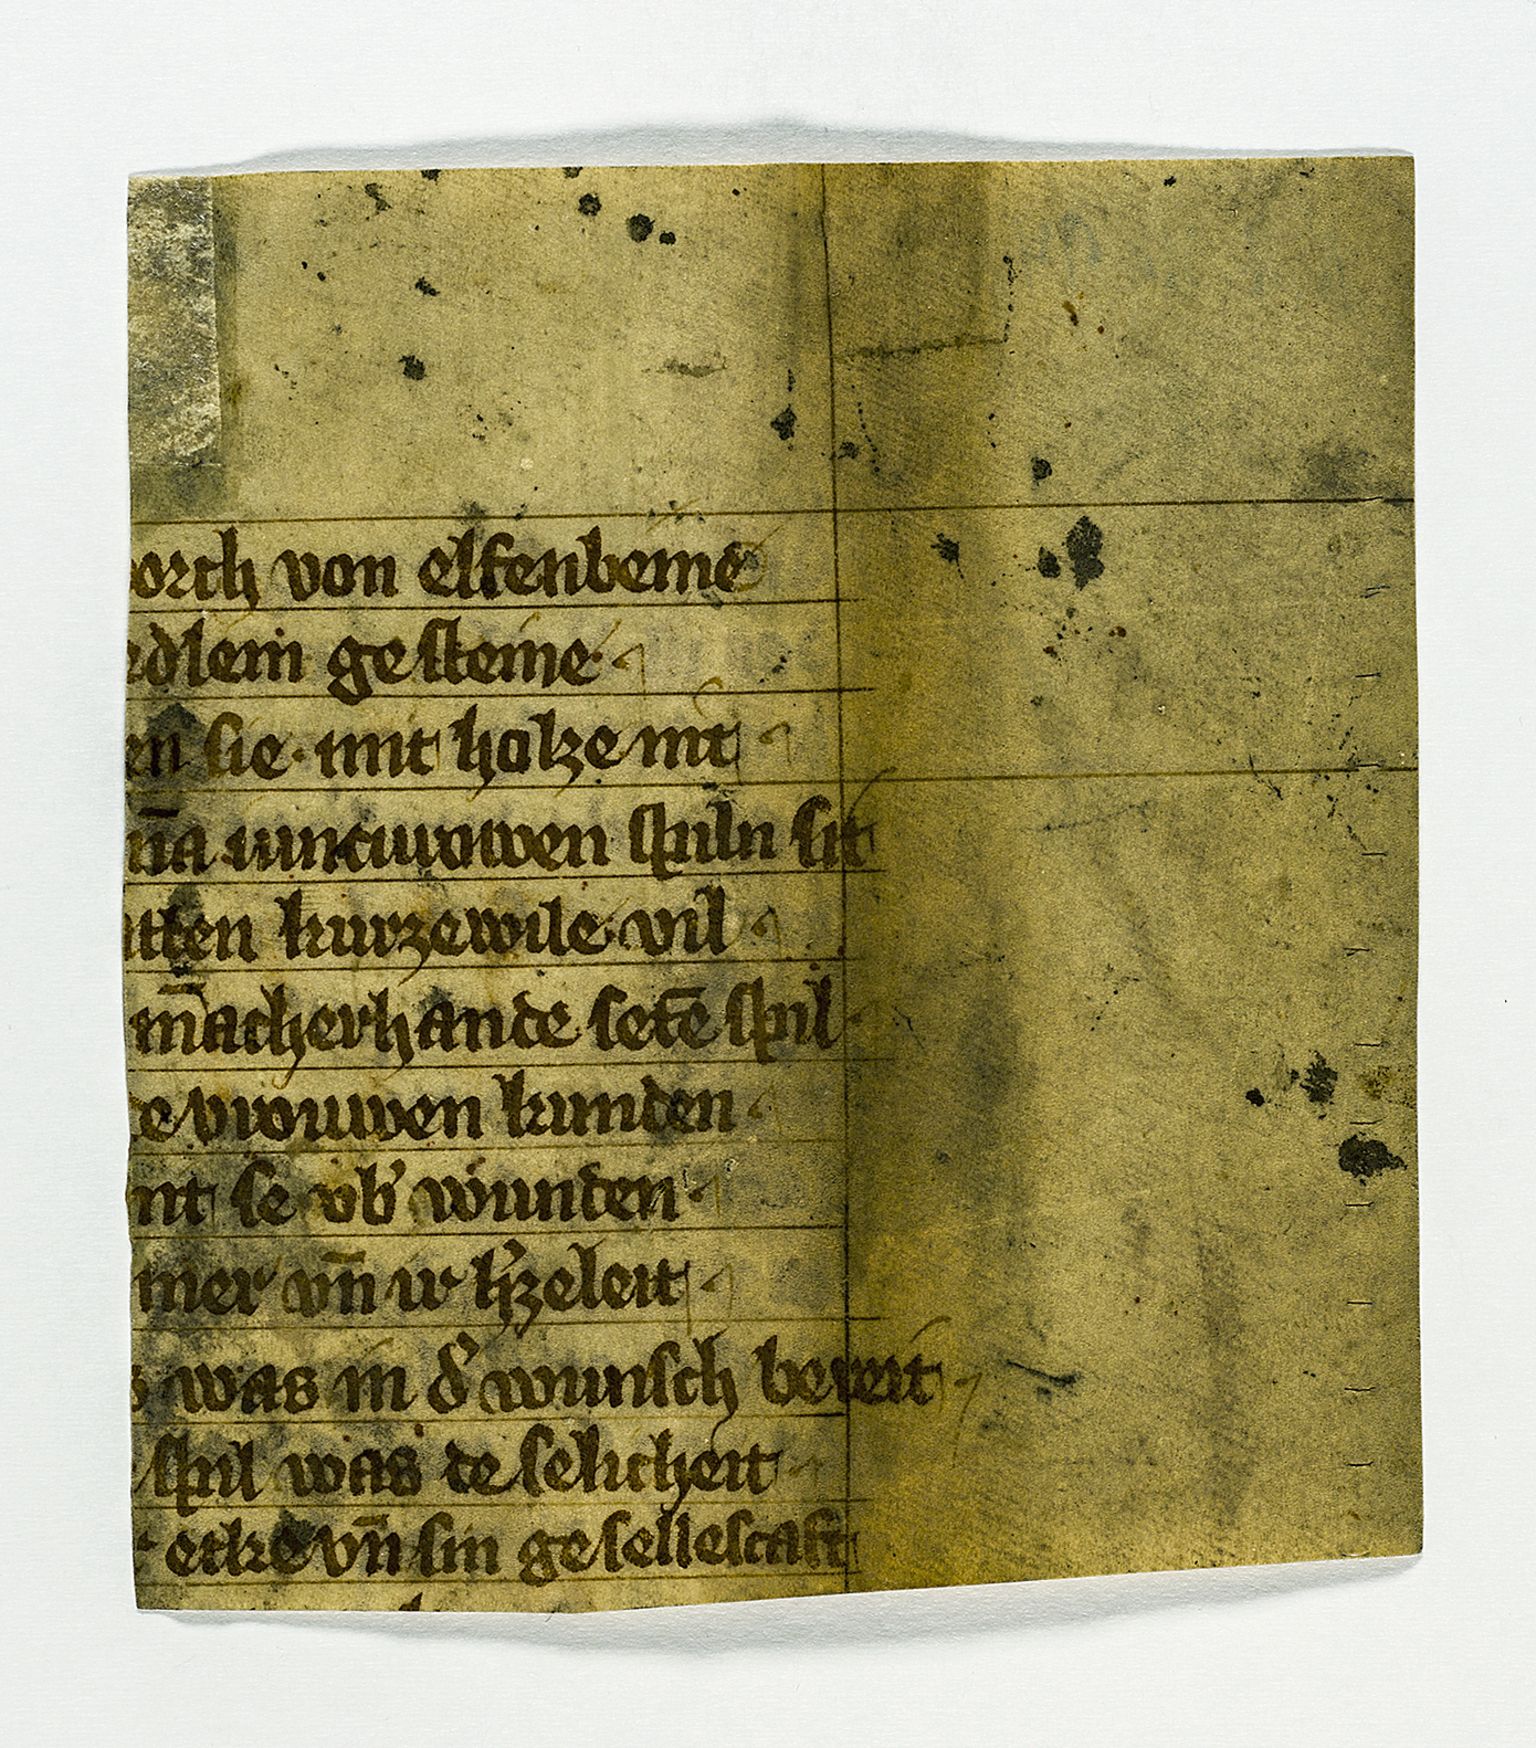 orch von elfenbeine
edlem gesteine
en sie · mit holze nit
ma iuncvrowen spiln sit
tten kurzewile vil
m̄acherhande setē spil
de vrouwen kunden
nt se vb' wunden
mer vn̄ ir h'zeleit
s was in d' wunsch bereit
spil was de selicheit
etke vn̄ sin gesellescaft